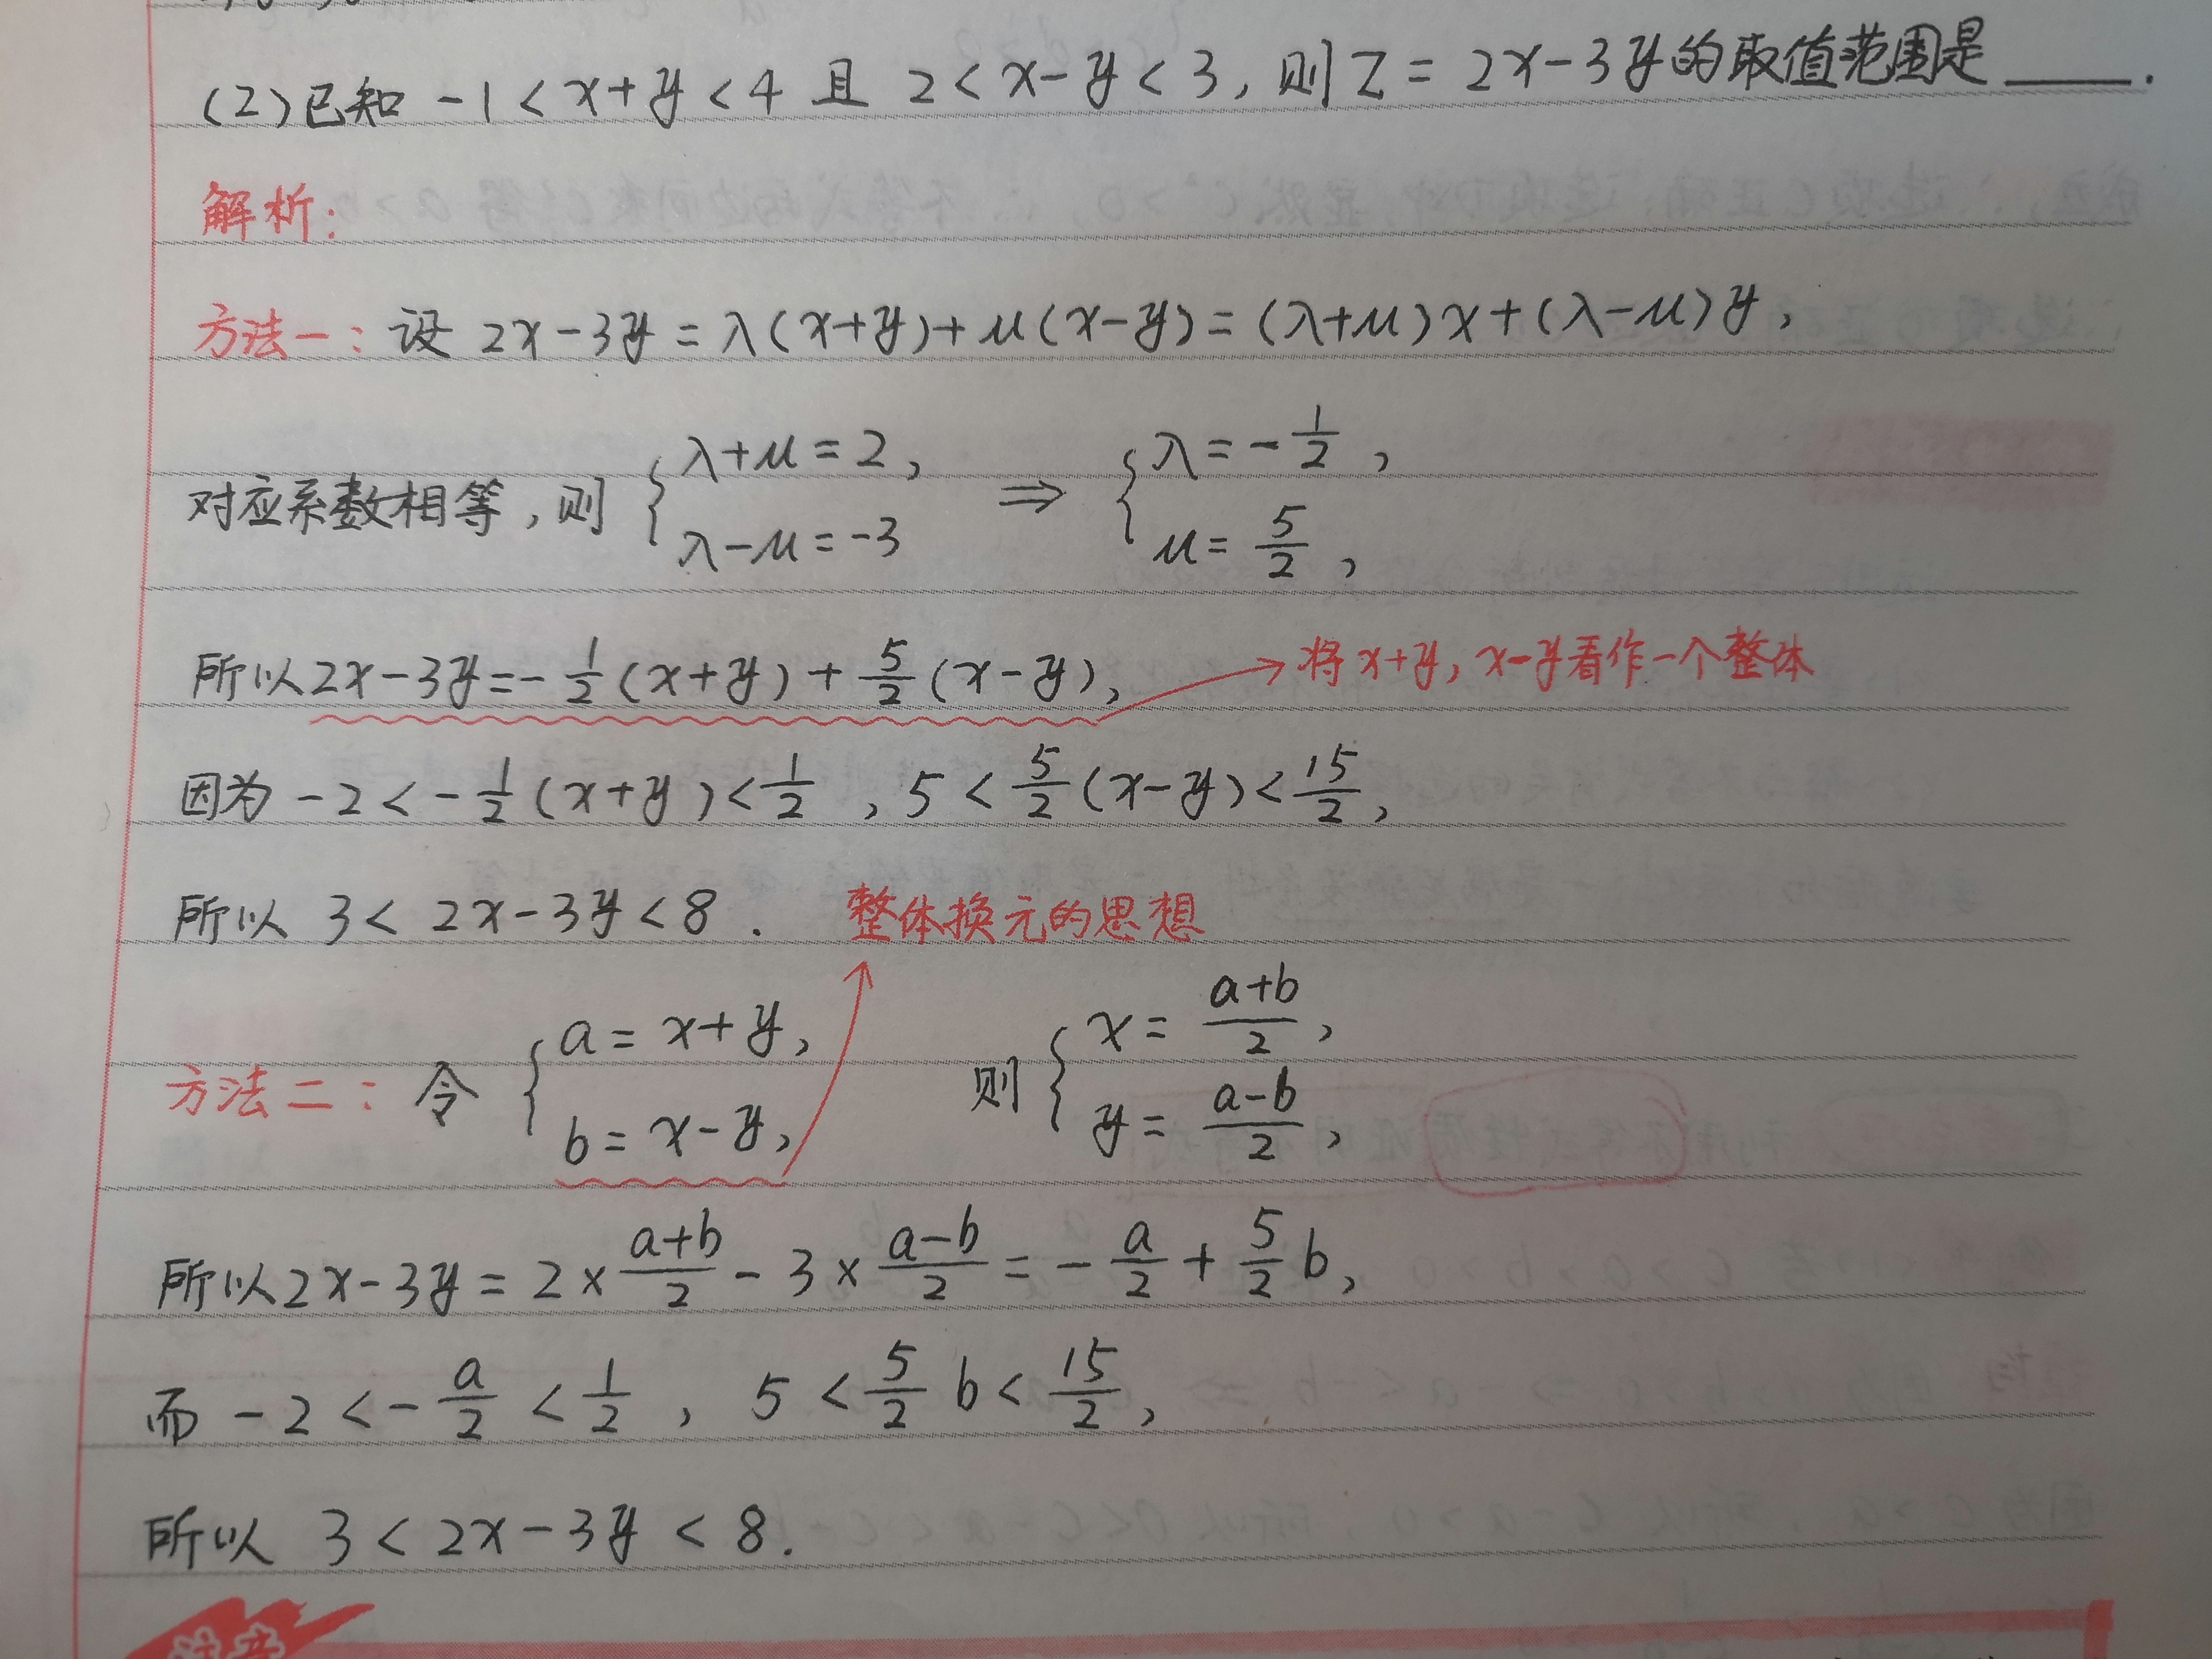 (2)已知 -1<x+y<4 且 2<x-y<3,则Z=2x-3y的取值范围是____.
解析:
方法一:设 2x-3y=λ(x+y)+μ(x-y)=(λ+μ)x+(λ-μ)y,
对应系数相等,则 {λ+μ=2, λ-μ=-3 ⇒ {λ=-1/2, μ=5/2,
所以2x-3y=-1/2(x+y)+5/2(x-y), →将x+y,x-y看作一个整体
因为-2<-1/2(x+y)<1/2,5<5/2(x-y)<15/2,
所以 3<2x-3y<8. 整体换元的思想
方法二:令 {a=x+y, b=x-y, 则 {x=(a+b)/2, y=(a-b)/2,
所以2x-3y=2×(a+b)/2-3×(a-b)/2=-a/2+5/2b,
而-2<-a/2<1/2,5<5/2b<15/2,
所以 3<2x-3y<8.